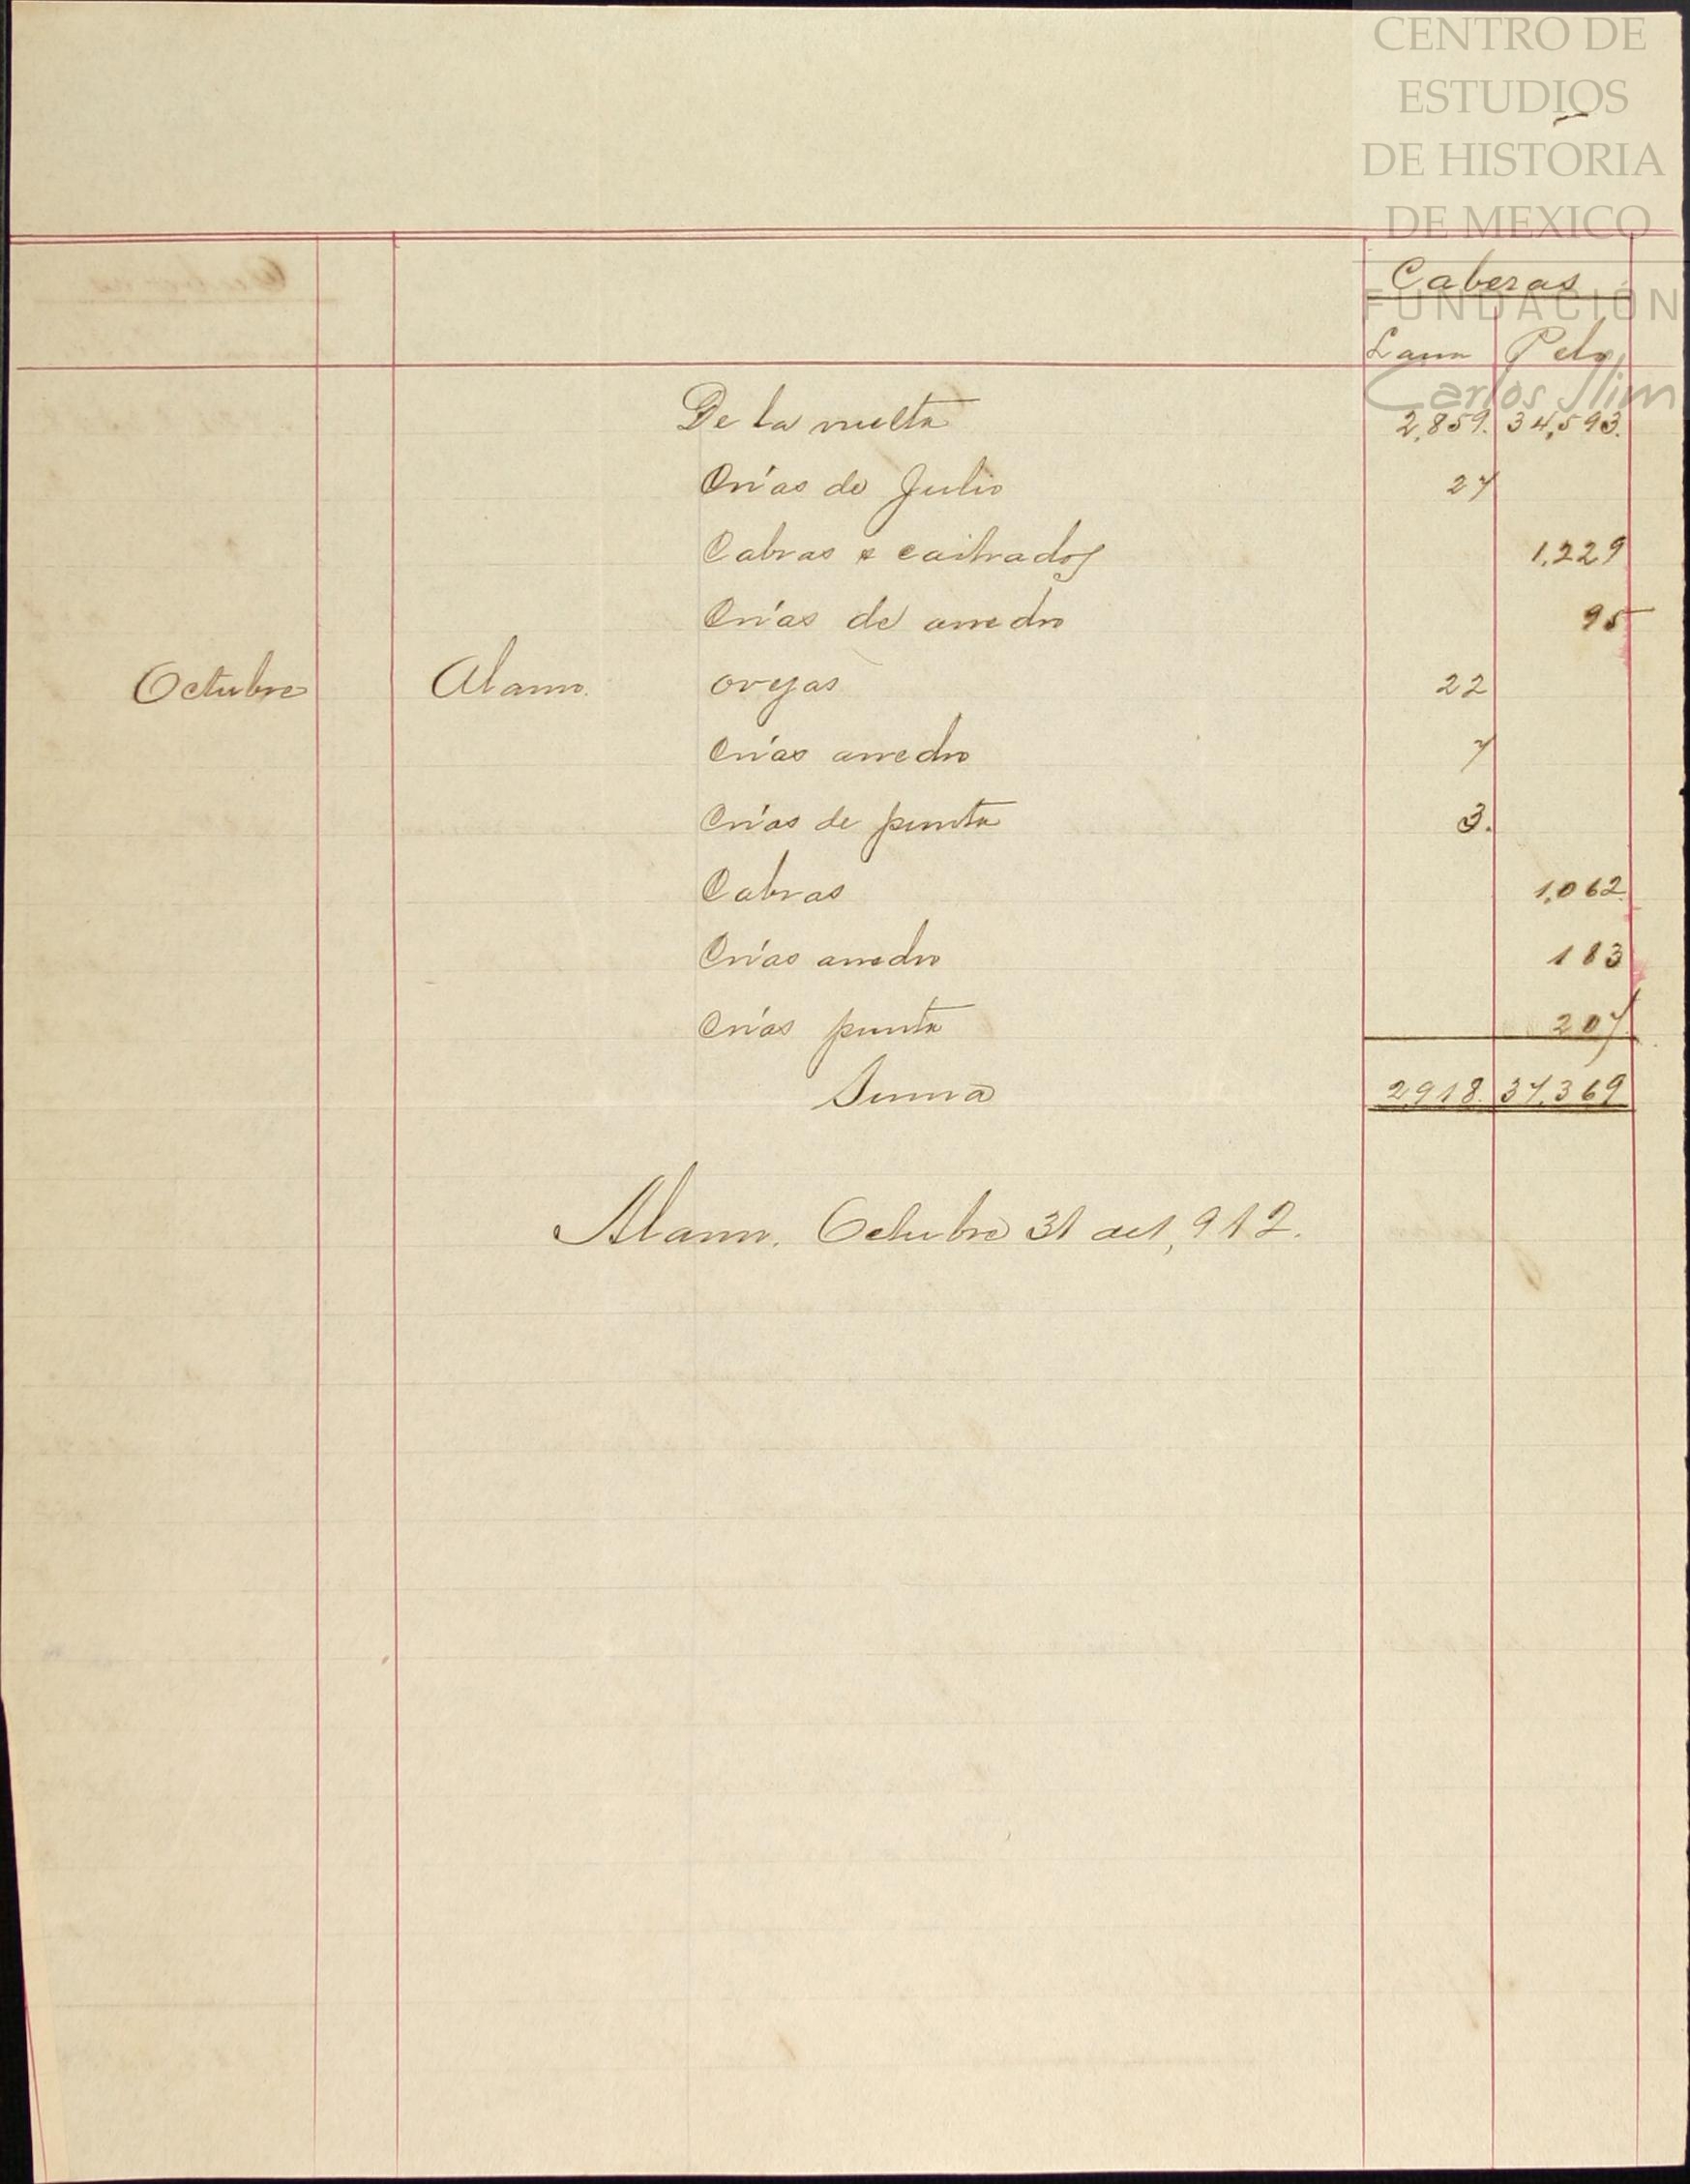 CENTRO DE
ESTUDIOS
DE HISTORIA
DE MEXICO
FUNDACIÓN
Carlos Slim
Cabezas
Lana Pelo
De la vuelta 2,859. 34,593.
Crías de Julio 27
Cabras e castrados 1.229
Crías de arredro 95
Octubre Alamo. ovejas 22
Crías arredro 7
Crías de punta 3.
Cabras 1,062.
Crías arredro 183
Crías punta 207.
Suma 2,918. 37,369
Alamo. Octubre 31 de 1,912.